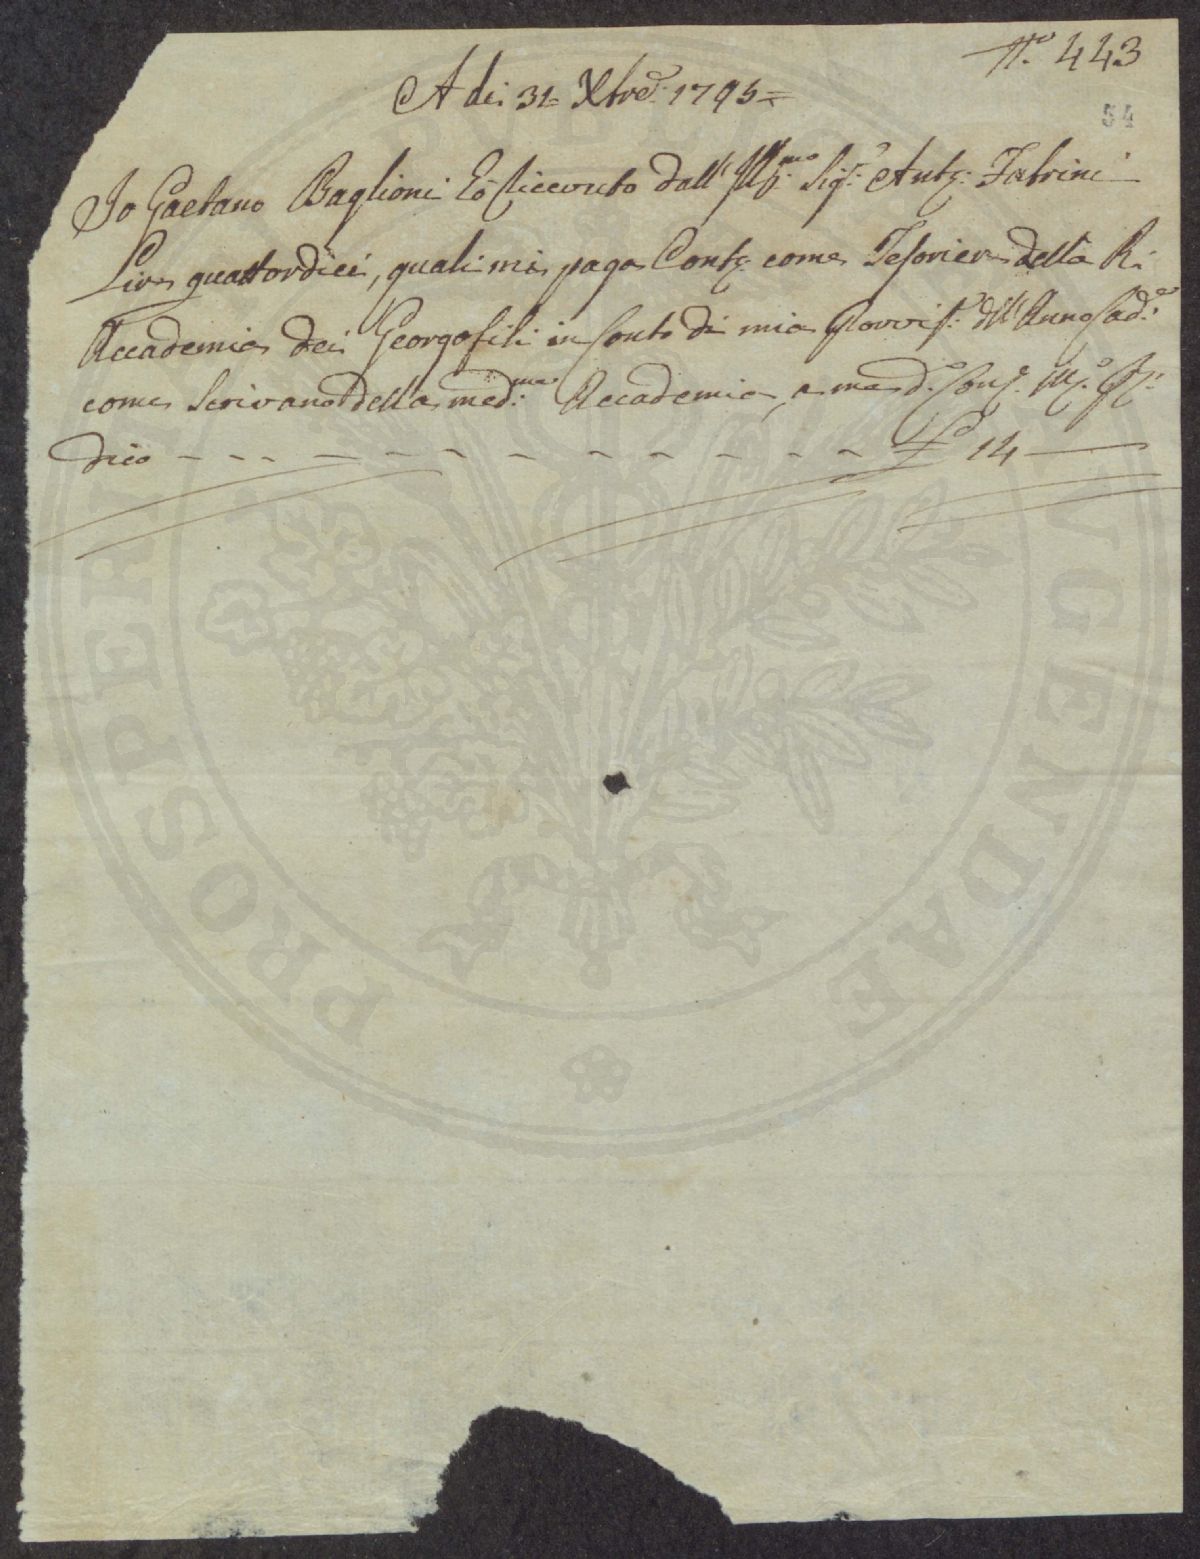 N.º 443
A dì 31= Xbre: 1795=
54
Io Gaetano Baglioni hò riceuuto dall' Ill:mo Sig:re Antº: Fabrini
Lire quattordici, quali mi paga Contº: come Tesoriere della R:
Accademia dei Georgofili in Conto di mia Provvisº: dell' Anno Cad:º
come Scrivano della med:ma Accademia, a me dº: Contº:
dico - - - - - - - - - - - - - £ 14 —
PROSPERITATI PUBLICAE AUGENDAE